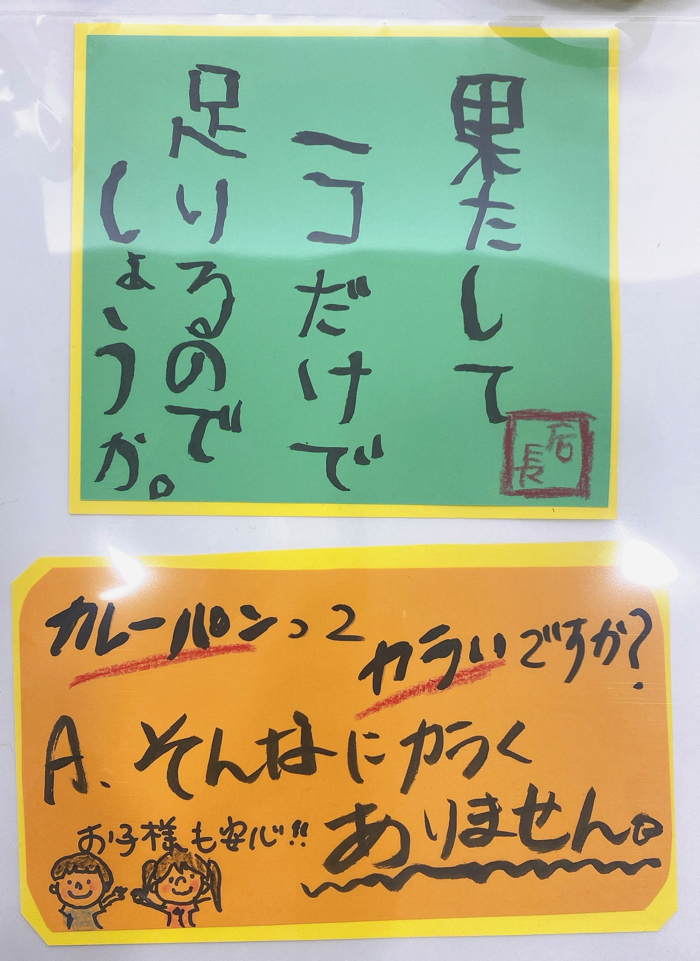 果たして
一コだけで
足りるので
しょうか。
店長
カレーパンって
カラいですか?
A. そんなにカラく
ありません。
お子様も安心!!